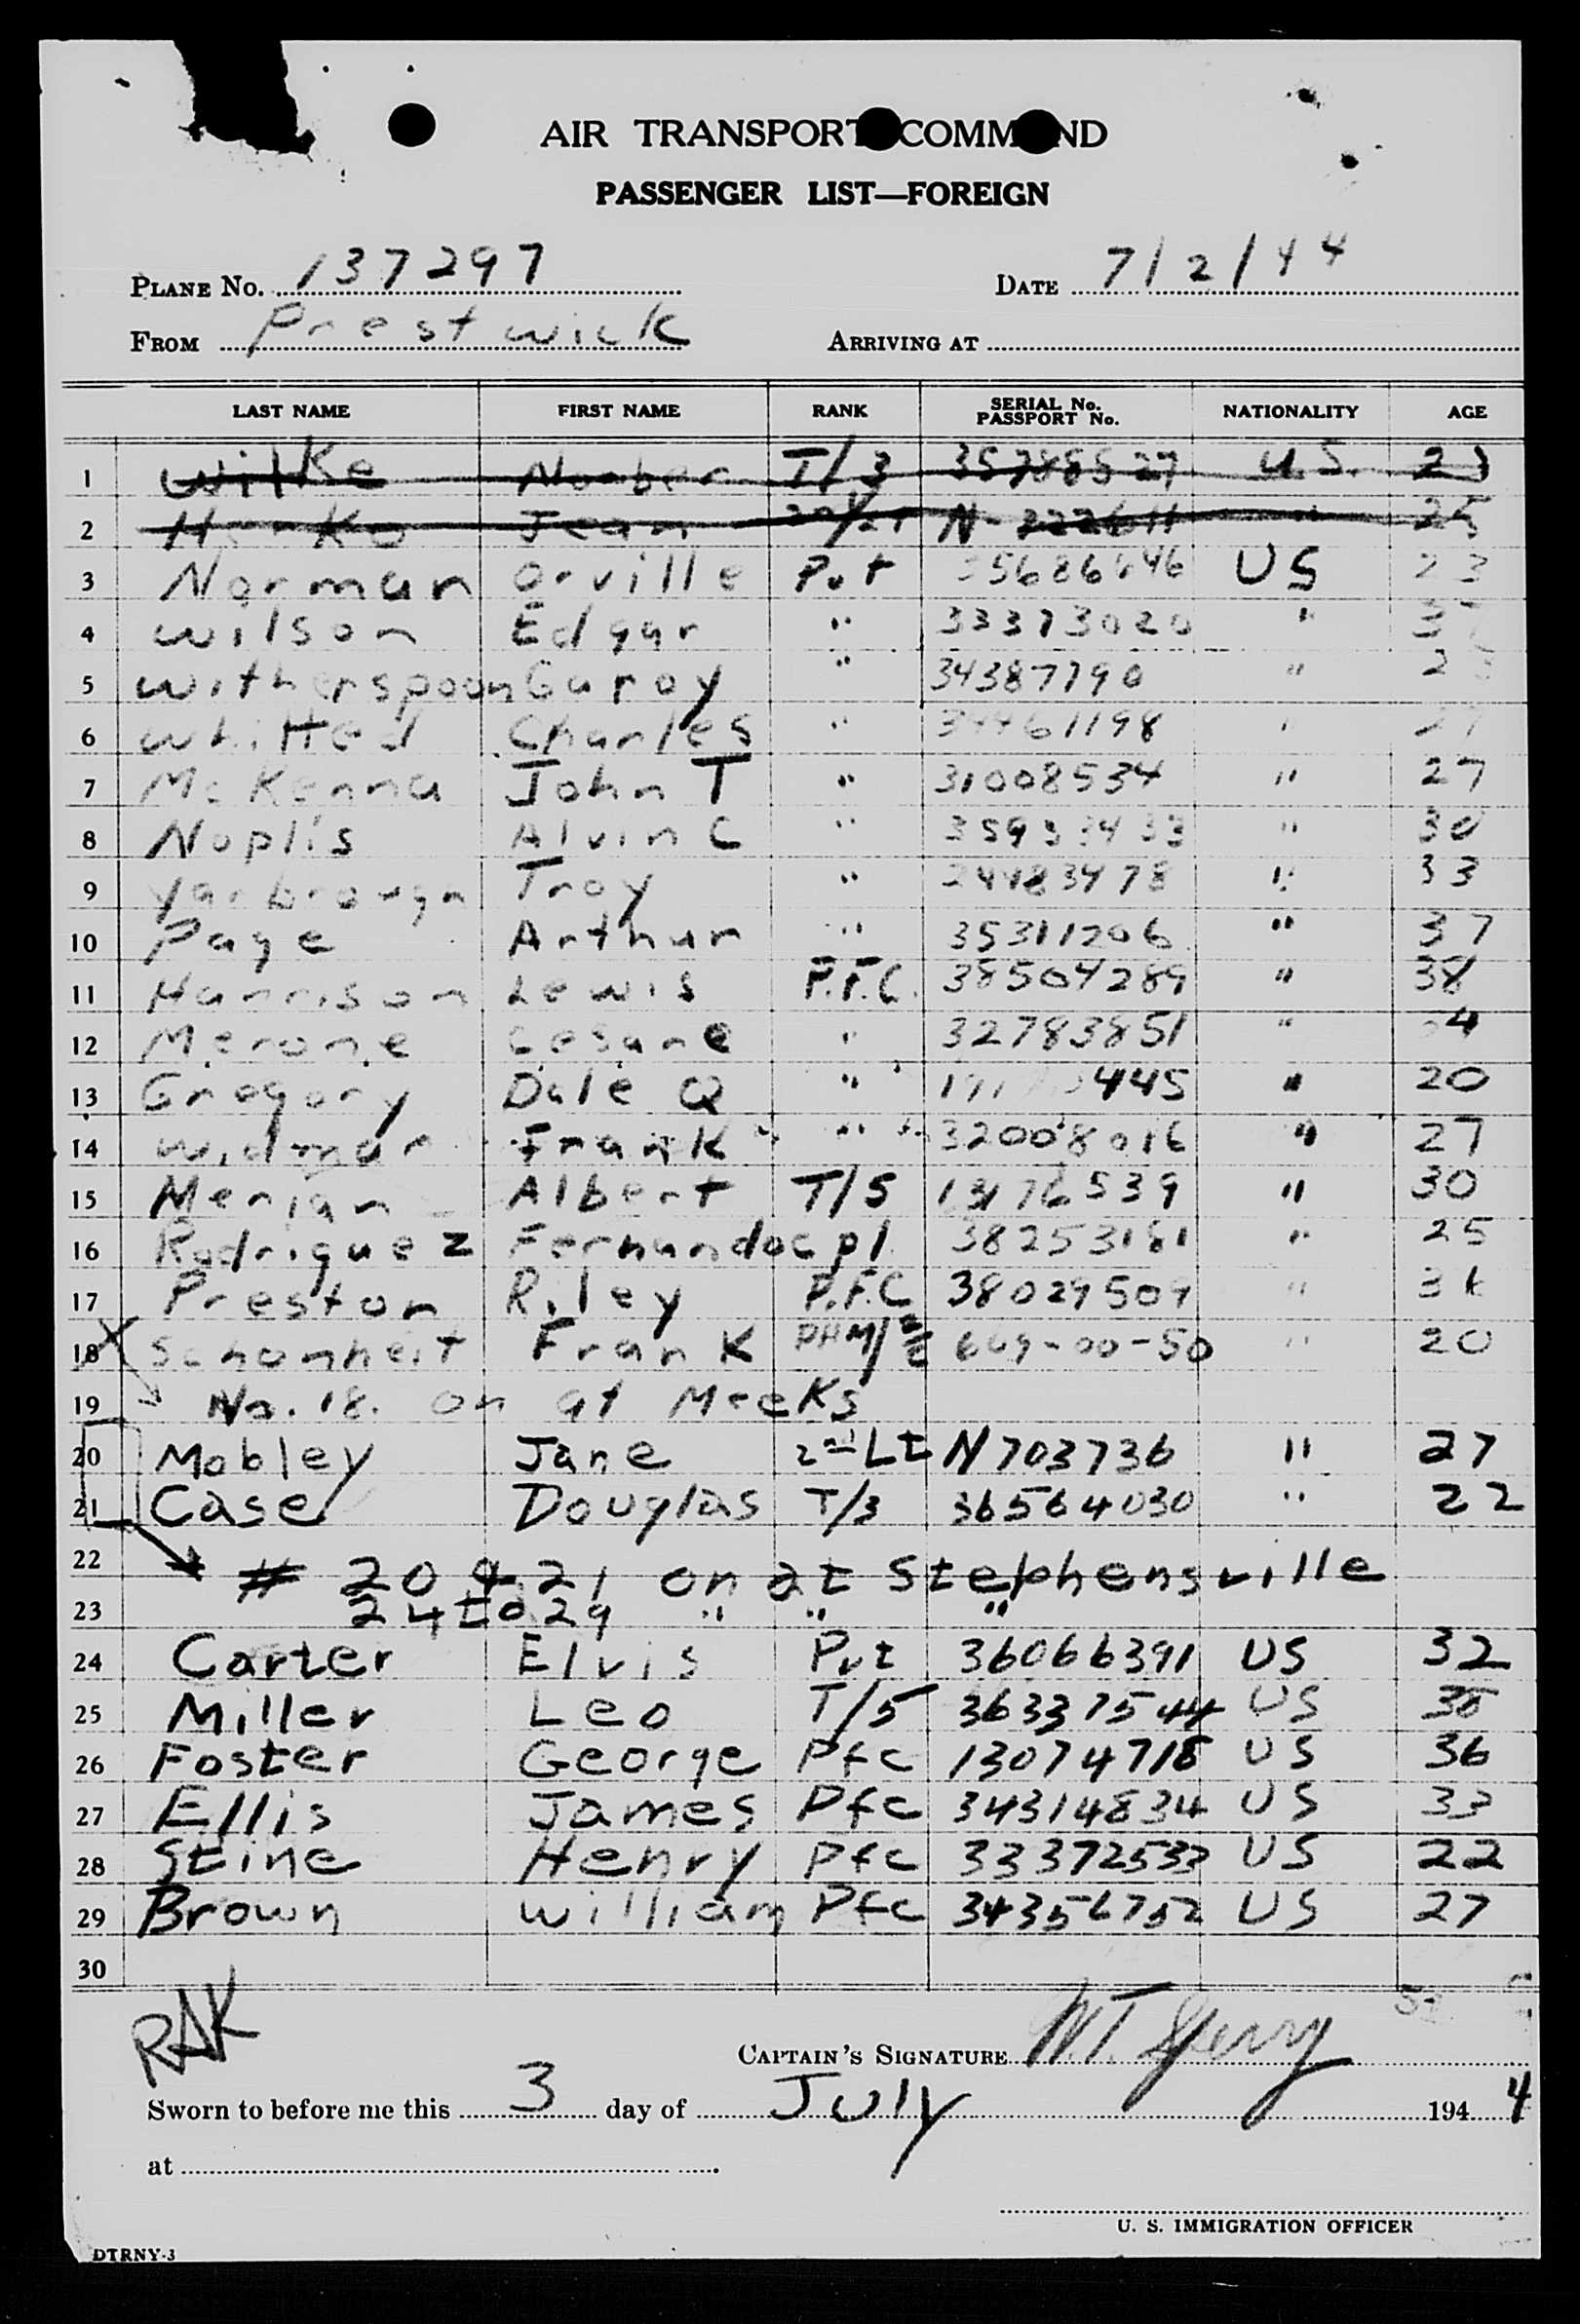 AIR TRANSPORT COMMAND
PASSENGER LIST—FOREIGN
PLANE No. 137297 DATE 7/2/44
FROM Prestwick ARRIVING AT
LAST NAME FIRST NAME RANK SERIAL No. PASSPORT No. NATIONALITY AGE
1 Wilke T/3 U.S.
2 Jean 25
3 Norman Orville Pvt US 23
4 Wilson Edgar " 33373020 "
5 Witherspoon Garoy " 34387790 "
6 Whitted Charles "
7 McKenna John T " 31008534 " 27
8 Noplis Alvin C " " 30
9 Yarbrough Troy " " 33
10 Page Arthur " 35311206 " 37
11 Harrison Lewis P.F.C. 38504289 " 38
12 Merone Cesare " 32783851 "
13 Gregory Dale Q " " 20
14 Widmar Frank " 32008016 " 27
15 Merian Albert T/5 13176539 " 30
16 Rodriguez Fernando Cpl 38253181 " 25
17 Preston Riley P.F.C 38029509 "
18 Schonheit Frank 669-00-50 " 20
19 No. 18. on at Meeks
20 Mobley Jane 2nd Lt N703736 " 27
21 Case Douglas T/3 36564030 " 22
22 # 20 & 21 on at Stephensville
23 24 to 29 " " "
24 Carter Elvis Pvt 36066391 US 32
25 Miller Leo T/5 36337544 US
26 Foster George Pfc 13074718 US 36
27 Ellis James Pfc 34314834 US 33
28 Stine Henry Pfc 33372533 US 22
29 Brown William Pfc 34356752 US 27
30
RAK
CAPTAIN'S SIGNATURE W.T.
Sworn to before me this 3 day of July 1944
at
U. S. IMMIGRATION OFFICER
DTRNY-3